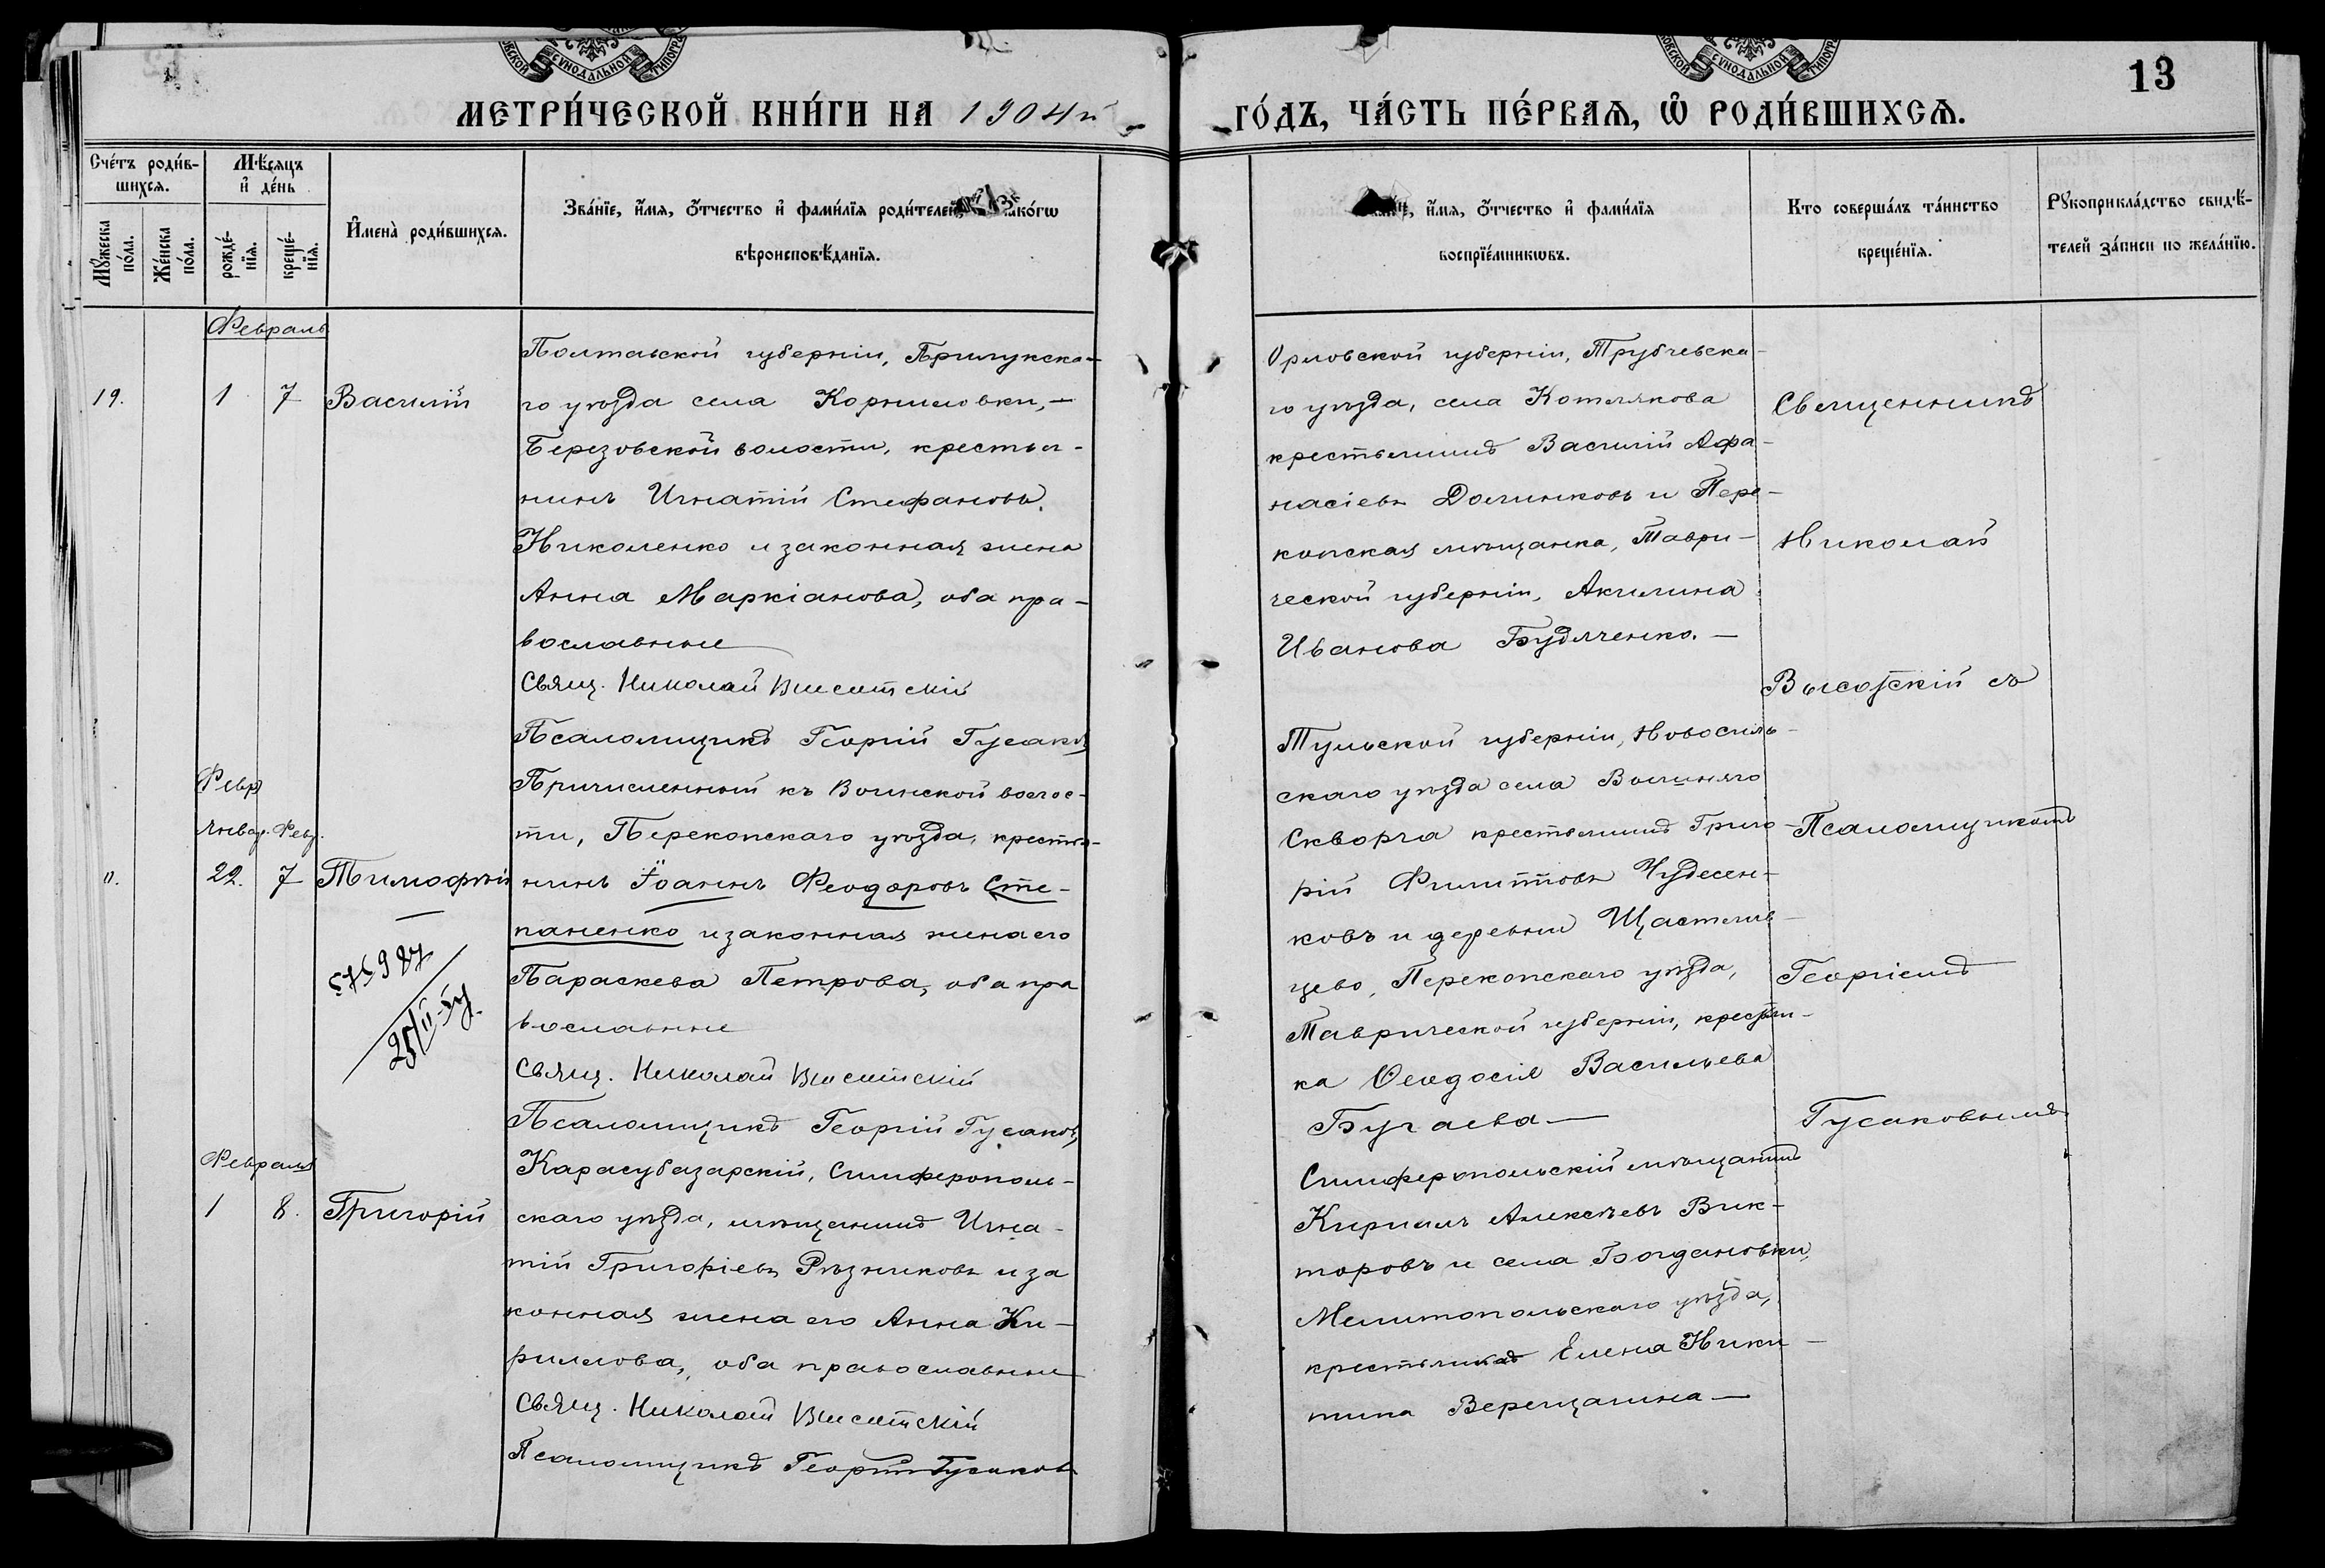 МЕТРИ́ЧЕСКОЙ КНИ́ГИ НА 1904й
ГО́ДЪ, ЧА́СТЬ ПЕ́РВАЯ, Ѡ РОДИ́ВШИХСЯ.
13
Сче́тъ роди́в-
шихся.
Мѣ́сяцъ
и҆ де́нь
Мꙋ́жеска
по́ла.
Же́нска
по́ла.
рожде́-
нїя.
креще́-
нїя.
И҆мена̀ роди́вшихся.
Зва́нїе, и҆́мя, ѻ҆́тчество и҆ фами́лїя роди́телей,
вѣроисповѣ́данїя.
и҆́мя, ѻ҆́тчество и҆ фами́лїя
воспрїе́мникѡвъ.
Кто соверша́лъ та́инство
креще́нїя.
Рꙋкоприкла́дство свидѣ́-
телей за́писи по жела́нїю.
Февраль
19. 1 7 Василій
Полтавской губерніи, Прилукска-
го уѣзда села Корниловки, —
Березовской волости, крестья-
нинъ Игнатій Стефановъ
Николенко и законная жена
Анна Маркіанова, оба пра-
вославные
Свящ. Николай Высотскій
Псаломщикъ Георгій Гусаковъ
Орловской губерніи, Трубчевска-
го уѣзда, села Котлякова
крестьянинъ Василій Афа-
насіевъ Долинковъ и Пере-
копская мѣщанка, Таври-
ческой губерніи, Акилина
Иванова Будяченко. —
Февр
Январ. Февр.
22. 7 Тимофѣй
575987
Причисленный къ Воинской волос-
ти, Перекопскаго уѣзда, крестья-
нинъ Іоаннъ Феодоровъ Сте-
паненко и законная жена его
Параскева Петрова, оба пра
вославные
Свящ. Николай Высотскій
Псаломщикъ Георгій Гусаковъ
Тульской губерніи, Новосиль-
скаго уѣзда села
Скворча крестьянинъ Григо-
рій Филипповъ Чудесен-
ковъ и деревни Щастлив-
цево, Перекопскаго уѣзда,
Таврической губерніи, крестьян-
ка Ѳеодосія Васильева
Бугаева —
Февраля
1 8. Григорій
Карасубазарскій, Симферополь-
скаго уѣзда, мѣщанинъ Игна-
тій Григоріевъ Рѣзниковъ и за
конная жена его Анна Ки-
риллова, оба православные
Свящ. Николай Высотскій
Псаломщикъ Георгій Гусаковъ
Симферопольскій мѣщанинъ
Кириллъ Алексѣевъ Вик-
торовъ и села Богдановки,
Мелитопольскаго уѣзда,
крестьянка Елена Ники-
тина Верещагина —
Священникъ
Николай
Высотскій съ
Псаломщикомъ
Георгіемъ
Гусаковымъ